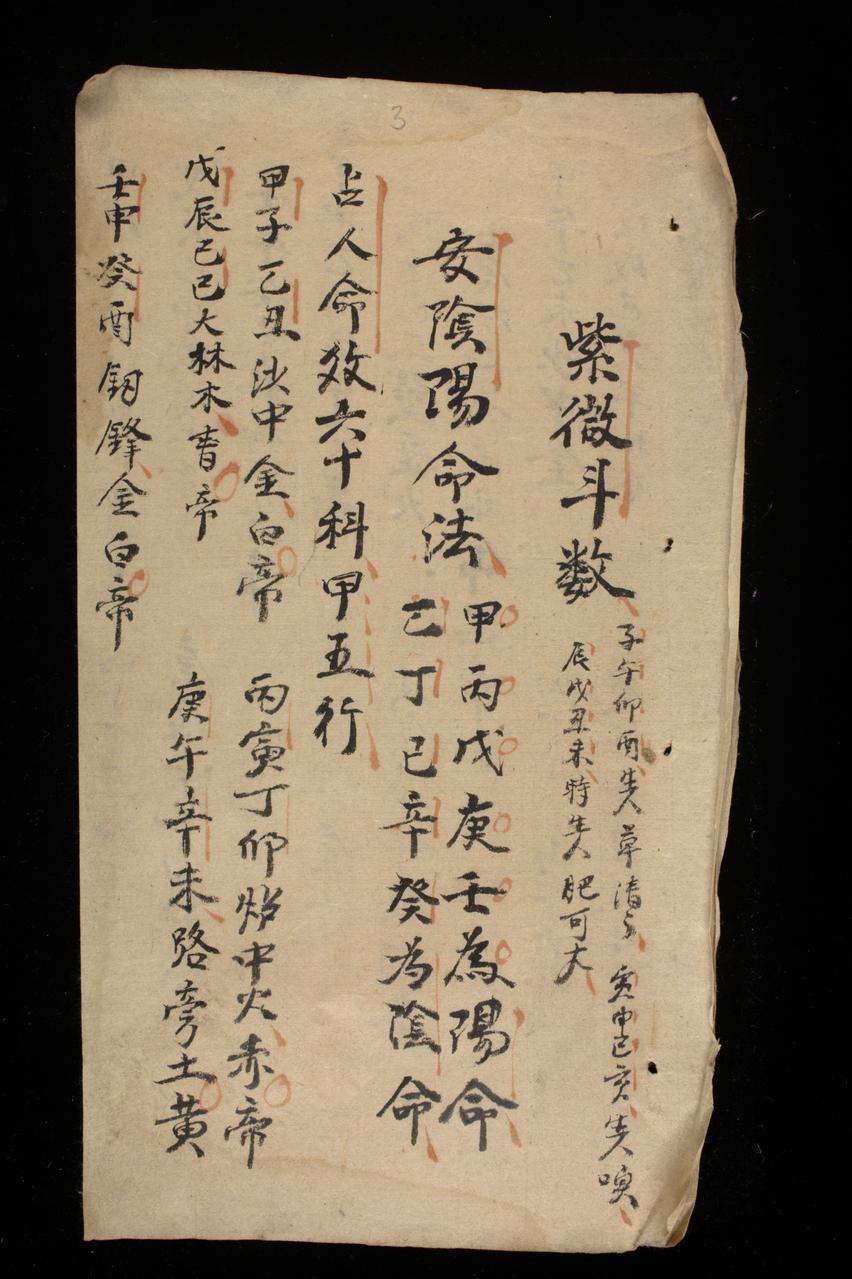 3
紫微斗数
子午卯酉生人草清 寅申巳亥生人
辰戌丑未時生人肥可大
安陰陽命法
甲丙戊庚壬為陽命
乙丁己辛癸為陰命
占人命效六十科甲五行
甲子乙丑沙中金白帝
丙寅丁卯炉中火赤帝
戊辰己巳大林木青帝
庚午辛未路旁土黄
壬申癸酉釼鋒金白帝